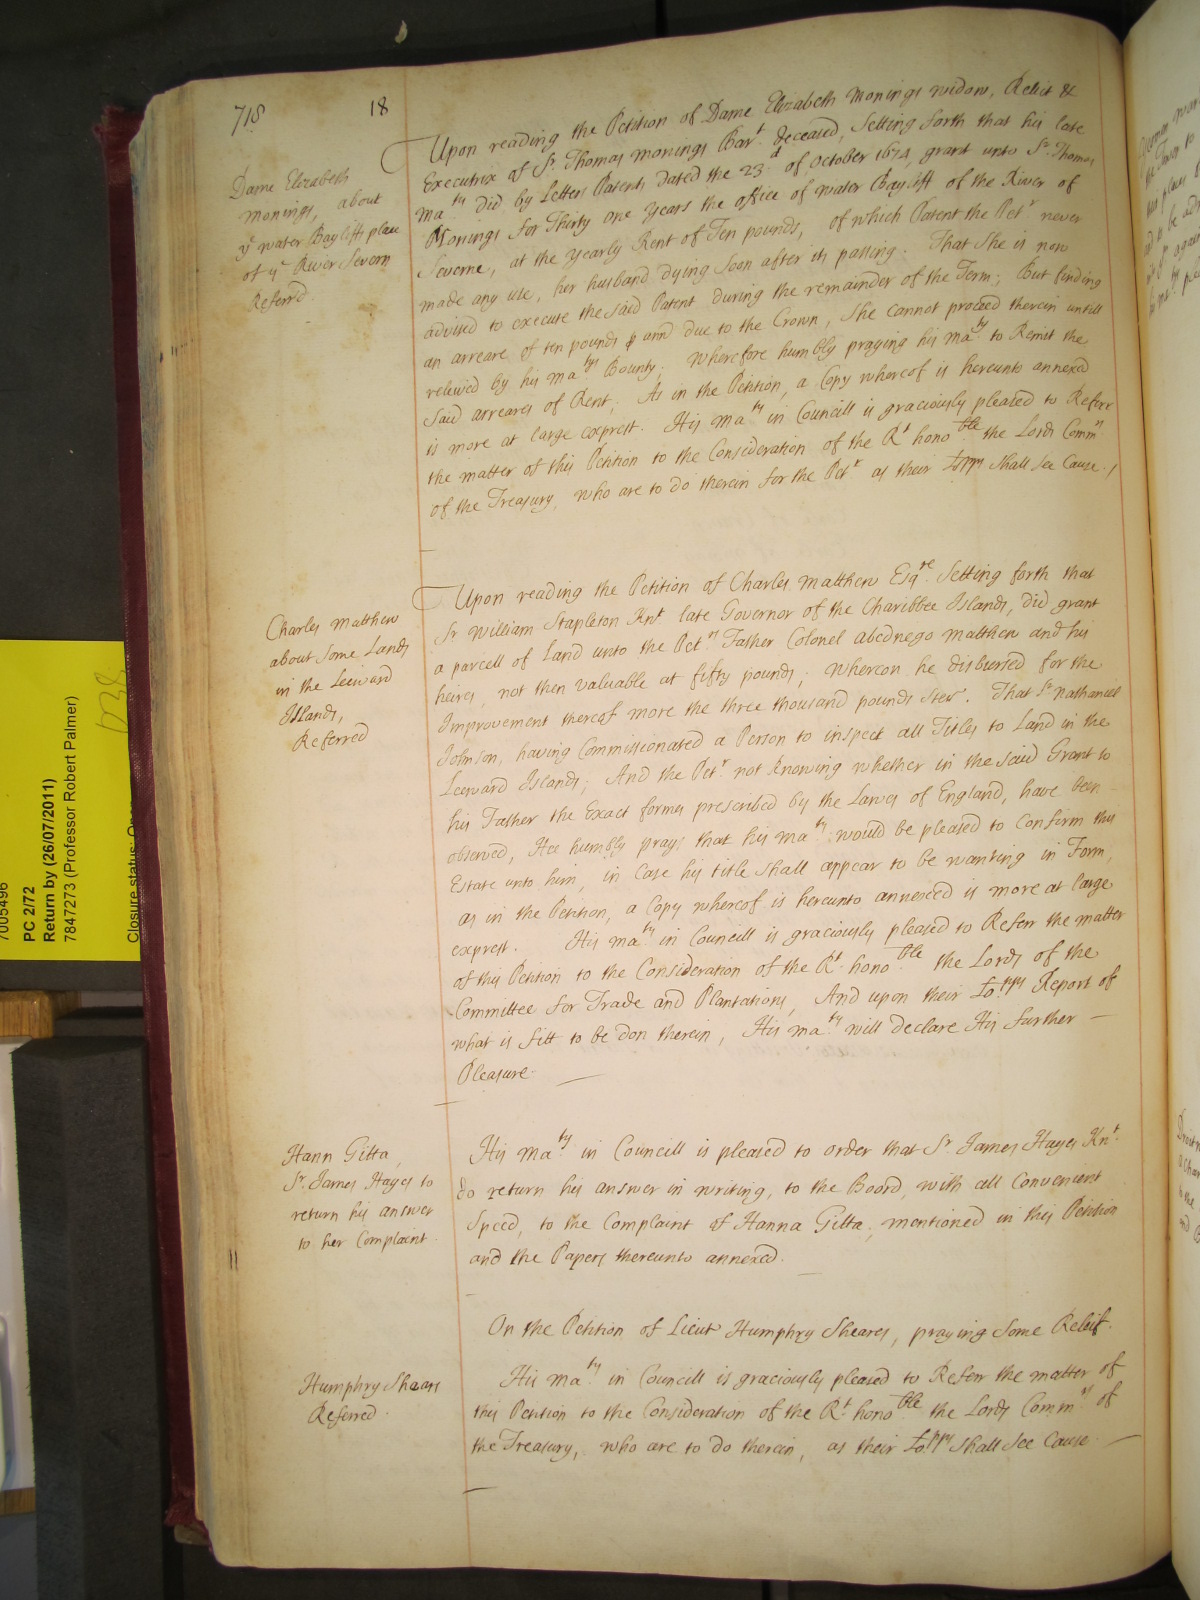 718
18
Dame Elizabeth
monings, about
ye water Bayliffs place
of ye River Severn
Referred.
Upon reading the Petition of Dame Elizabeth Monings widow, Relict &
Executrix of Sr. Thomas Monings Bart. deceased, Setting forth that his late
Maty. did by Letters Patents dated the 23d of October 1674, grant unto Sr. Thomas
Monings for Thirty one years the office of water Bayliff of the River of
Severne, at the yearly Rent of Ten pounds, of which Patent the Petr. never
made any use, her husband dying soon after its passing. That She is now
advised to execute the said Patent during the remainder of the Term; But finding
an arreare of ten pounds p ann due to the Crown, She cannot proceed therein untill
releived by his Matys. Bounty; Wherefore humbly praying his Maty to Remit the
said arreares of Rent, As in the Petition, a Copy whereof is hereunto annexed
is more at large exprest. His Maty in Councill is graciously pleased to Referr
the matter of this Petition to the Consideration of the Rt honoble the Lords Commrs
of the Treasury, who are to do therein for the Petr as their Lopps shall see Cause.
Charles Matthew
about some Lands
in the Leeward
Islands,
Referred
Upon reading the Petition of Charles Matthew Esqre. Setting forth that
Sr William Stapleton Knt late Governor of the Charibbee Islands, did grant
a parcell of Land unto the Petrs Father Colonel Abednego Matthew and his
heires, not then valuable at fifty pounds; Whereon he disbursed for the
Improvement thereof more the three thousand pounds Ster. That Sr Nathaniel
Johnson, having Commissionated a Person to inspect all Titles to Land in the
Leeward Islands; And the Petr. not knowing whether in the said Grant to
his Father the Exact formes prescribed by the Lawes of England, have been
observed, Hee humbly prays that his Maty. would be pleased to Confirm this
Estate unto him, in Case his title shall appear to be wanting in Form,
as in the Petition, a Copy whereof is hereunto annexed is more at large
exprest. His Maty. in Councill is graciously pleased to Referr the matter
of this Petition to the Consideration of the Rt. honoble the Lords of the
Committee for Trade and Plantations, And upon their Lopps Report of
what is fitt to be don therein, His Maty will declare His further
Pleasure
Hann Gitta,
Sr. James Hayes to
return his answer
to her Complaint.
His Maty. in Councill is pleased to order that Sr James Hayes Knt.
do return his answer in writing, to the Board, with all Convenient
Speed, to the Complaint of Hanna Gitta, mentioned in this Petition
and the Papers thereunto annexed.
On the Petition of Lieut Humphry Sheares, praying some Releif.
Humphry Shears
Referred.
His Maty. in Councill is graciously pleased to Referr the matter of
this Petition to the Consideration of the Rt. honoble the Lords Commrs of
the Treasury, who are to do therein, as their Lopps shall see Cause
7005496
PC 2/72
Return by (26/07/2011)
7847273 (Professor Robert Palmer)
Closure status: